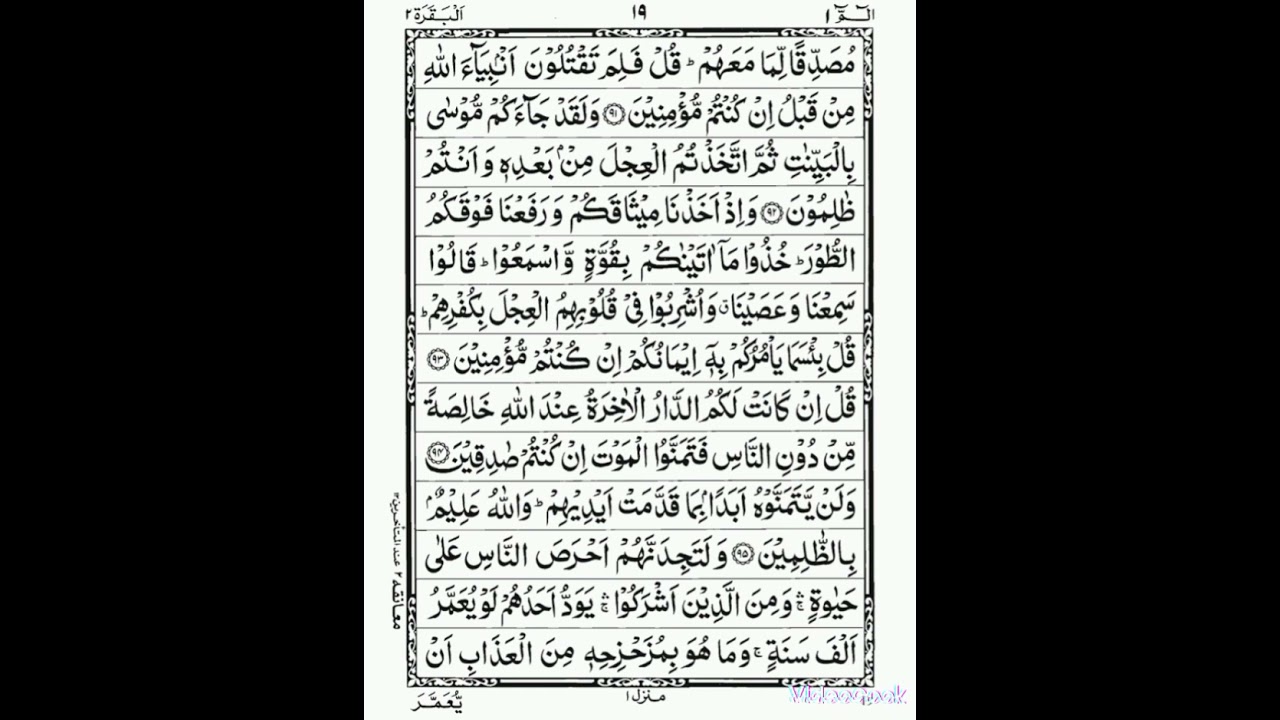 الٓمّٓ ١ ١٩ اَلْبَقَرَة ٢
مُصَدِّقًا لِّمَا مَعَهُمْ ؕ قُلْ فَلِمَ تَقْتُلُوْنَ اَنْۢبِيَآءَ اللّٰهِ
مِنْ قَبْلُ اِنْ كُنْتُمْ مُّؤْمِنِيْنَ ۝٩١ وَلَقَدْ جَآءَكُمْ مُّوْسٰى
بِالْبَيِّنٰتِ ثُمَّ اتَّخَذْتُمُ الْعِجْلَ مِنْۢ بَعْدِهٖ وَاَنْتُمْ
ظٰلِمُوْنَ ۝٩٢ وَاِذْ اَخَذْنَا مِيْثَاقَكُمْ وَرَفَعْنَا فَوْقَكُمُ
الطُّوْرَ ؕ خُذُوْا مَآ اٰتَيْنٰكُمْ بِقُوَّةٍ وَّاسْمَعُوْا ؕ قَالُوْا
سَمِعْنَا وَعَصَيْنَا ۗ وَاُشْرِبُوْا فِيْ قُلُوْبِهِمُ الْعِجْلَ بِكُفْرِهِمْ ؕ
قُلْ بِئْسَمَا يَاْمُرُكُمْ بِهٖٓ اِيْمَانُكُمْ اِنْ كُنْتُمْ مُّؤْمِنِيْنَ ۝٩٣
قُلْ اِنْ كَانَتْ لَكُمُ الدَّارُ الْاٰخِرَةُ عِنْدَ اللّٰهِ خَالِصَةً
مِّنْ دُوْنِ النَّاسِ فَتَمَنَّوُا الْمَوْتَ اِنْ كُنْتُمْ صٰدِقِيْنَ ۝٩٤
وَلَنْ يَّتَمَنَّوْهُ اَبَدًۢا بِمَا قَدَّمَتْ اَيْدِيْهِمْ ؕ وَاللّٰهُ عَلِيْمٌۢ
بِالظّٰلِمِيْنَ ۝٩٥ وَلَتَجِدَنَّهُمْ اَحْرَصَ النَّاسِ عَلٰى
حَيٰوةٍ ۛۚ وَمِنَ الَّذِيْنَ اَشْرَكُوْا ۛۚ يَوَدُّ اَحَدُهُمْ لَوْ يُعَمَّرُ
اَلْفَ سَنَةٍ ۚ وَمَا هُوَ بِمُزَحْزِحِهٖ مِنَ الْعَذَابِ اَنْ
معانقه ٢ عند المتأخرين ١٢
منزل ١
يُّعَمَّرَ